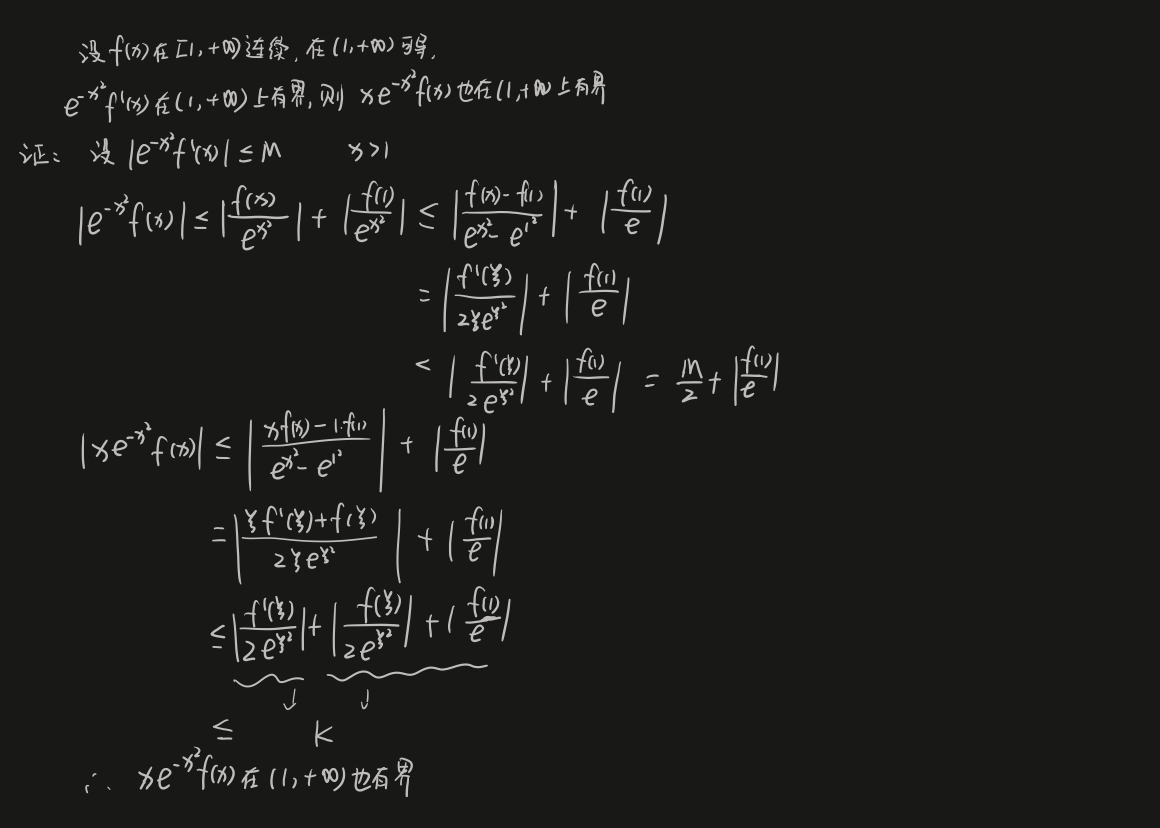 设 f(x) 在 [1, +∞) 连续, 在 (1, +∞) 可导,
e^{-x²} f'(x) 在 (1, +∞) 上有界, 则 xe^{-x²} f(x) 也在 (1, +∞) 上有界
证: 设 |e^{-x²} f'(x)| ≤ M x>1
|e^{-x²} f(x)| ≤ |f(x)/e^{x²}| + |f(1)/e^{x²}| ≤ |(f(x) - f(1))/(e^{x²} - e^{1²})| + |f(1)/e|
= |f'(ξ)/(2ξe^{ξ²})| + |f(1)/e|
< |f'(ξ)/(2e^{ξ²})| + |f(1)/e| = M/2 + |f(1)/e|
|xe^{-x²} f(x)| ≤ |(xf(x) - 1·f(1))/(e^{x²} - e^{1²})| + |f(1)/e|
= |(ξf'(ξ) + f(ξ))/(2ξe^{ξ²})| + |f(1)/e|
≤ |f'(ξ)/(2e^{ξ²})| + |f(ξ)/(2e^{ξ²})| + |f(1)/e|
↓ ↓
≤ K
∴ xe^{-x²} f(x) 在 (1, +∞) 也有界